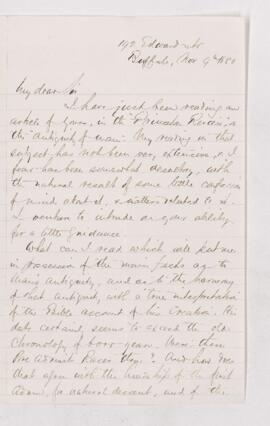 192 Edward St
Buffalo, Nov 9th 1880
My dear Sir
I have just been reading an
article of yours, in the Princeton Review, on
the "Antiquity of man". My reading in that
subject has not been very extensive, & I
fear has been somewhat desultory, with
the natural result of some little confusion
of mind about it, & matters related to it.
I venture to intrude on your ability
for a little guidance.
What can I read which will put me
in possession of the main facts as to
man's antiquity, and as to the harmony
of such antiquity, with a true interpretation
of the Bible account of his Creation. The
date certainly seems to exceed the old
chronology of 6000 years. Were there
Pre Adamite Races then? And how does
that agree with the headship of the first
Adam, for natural descent, and of the